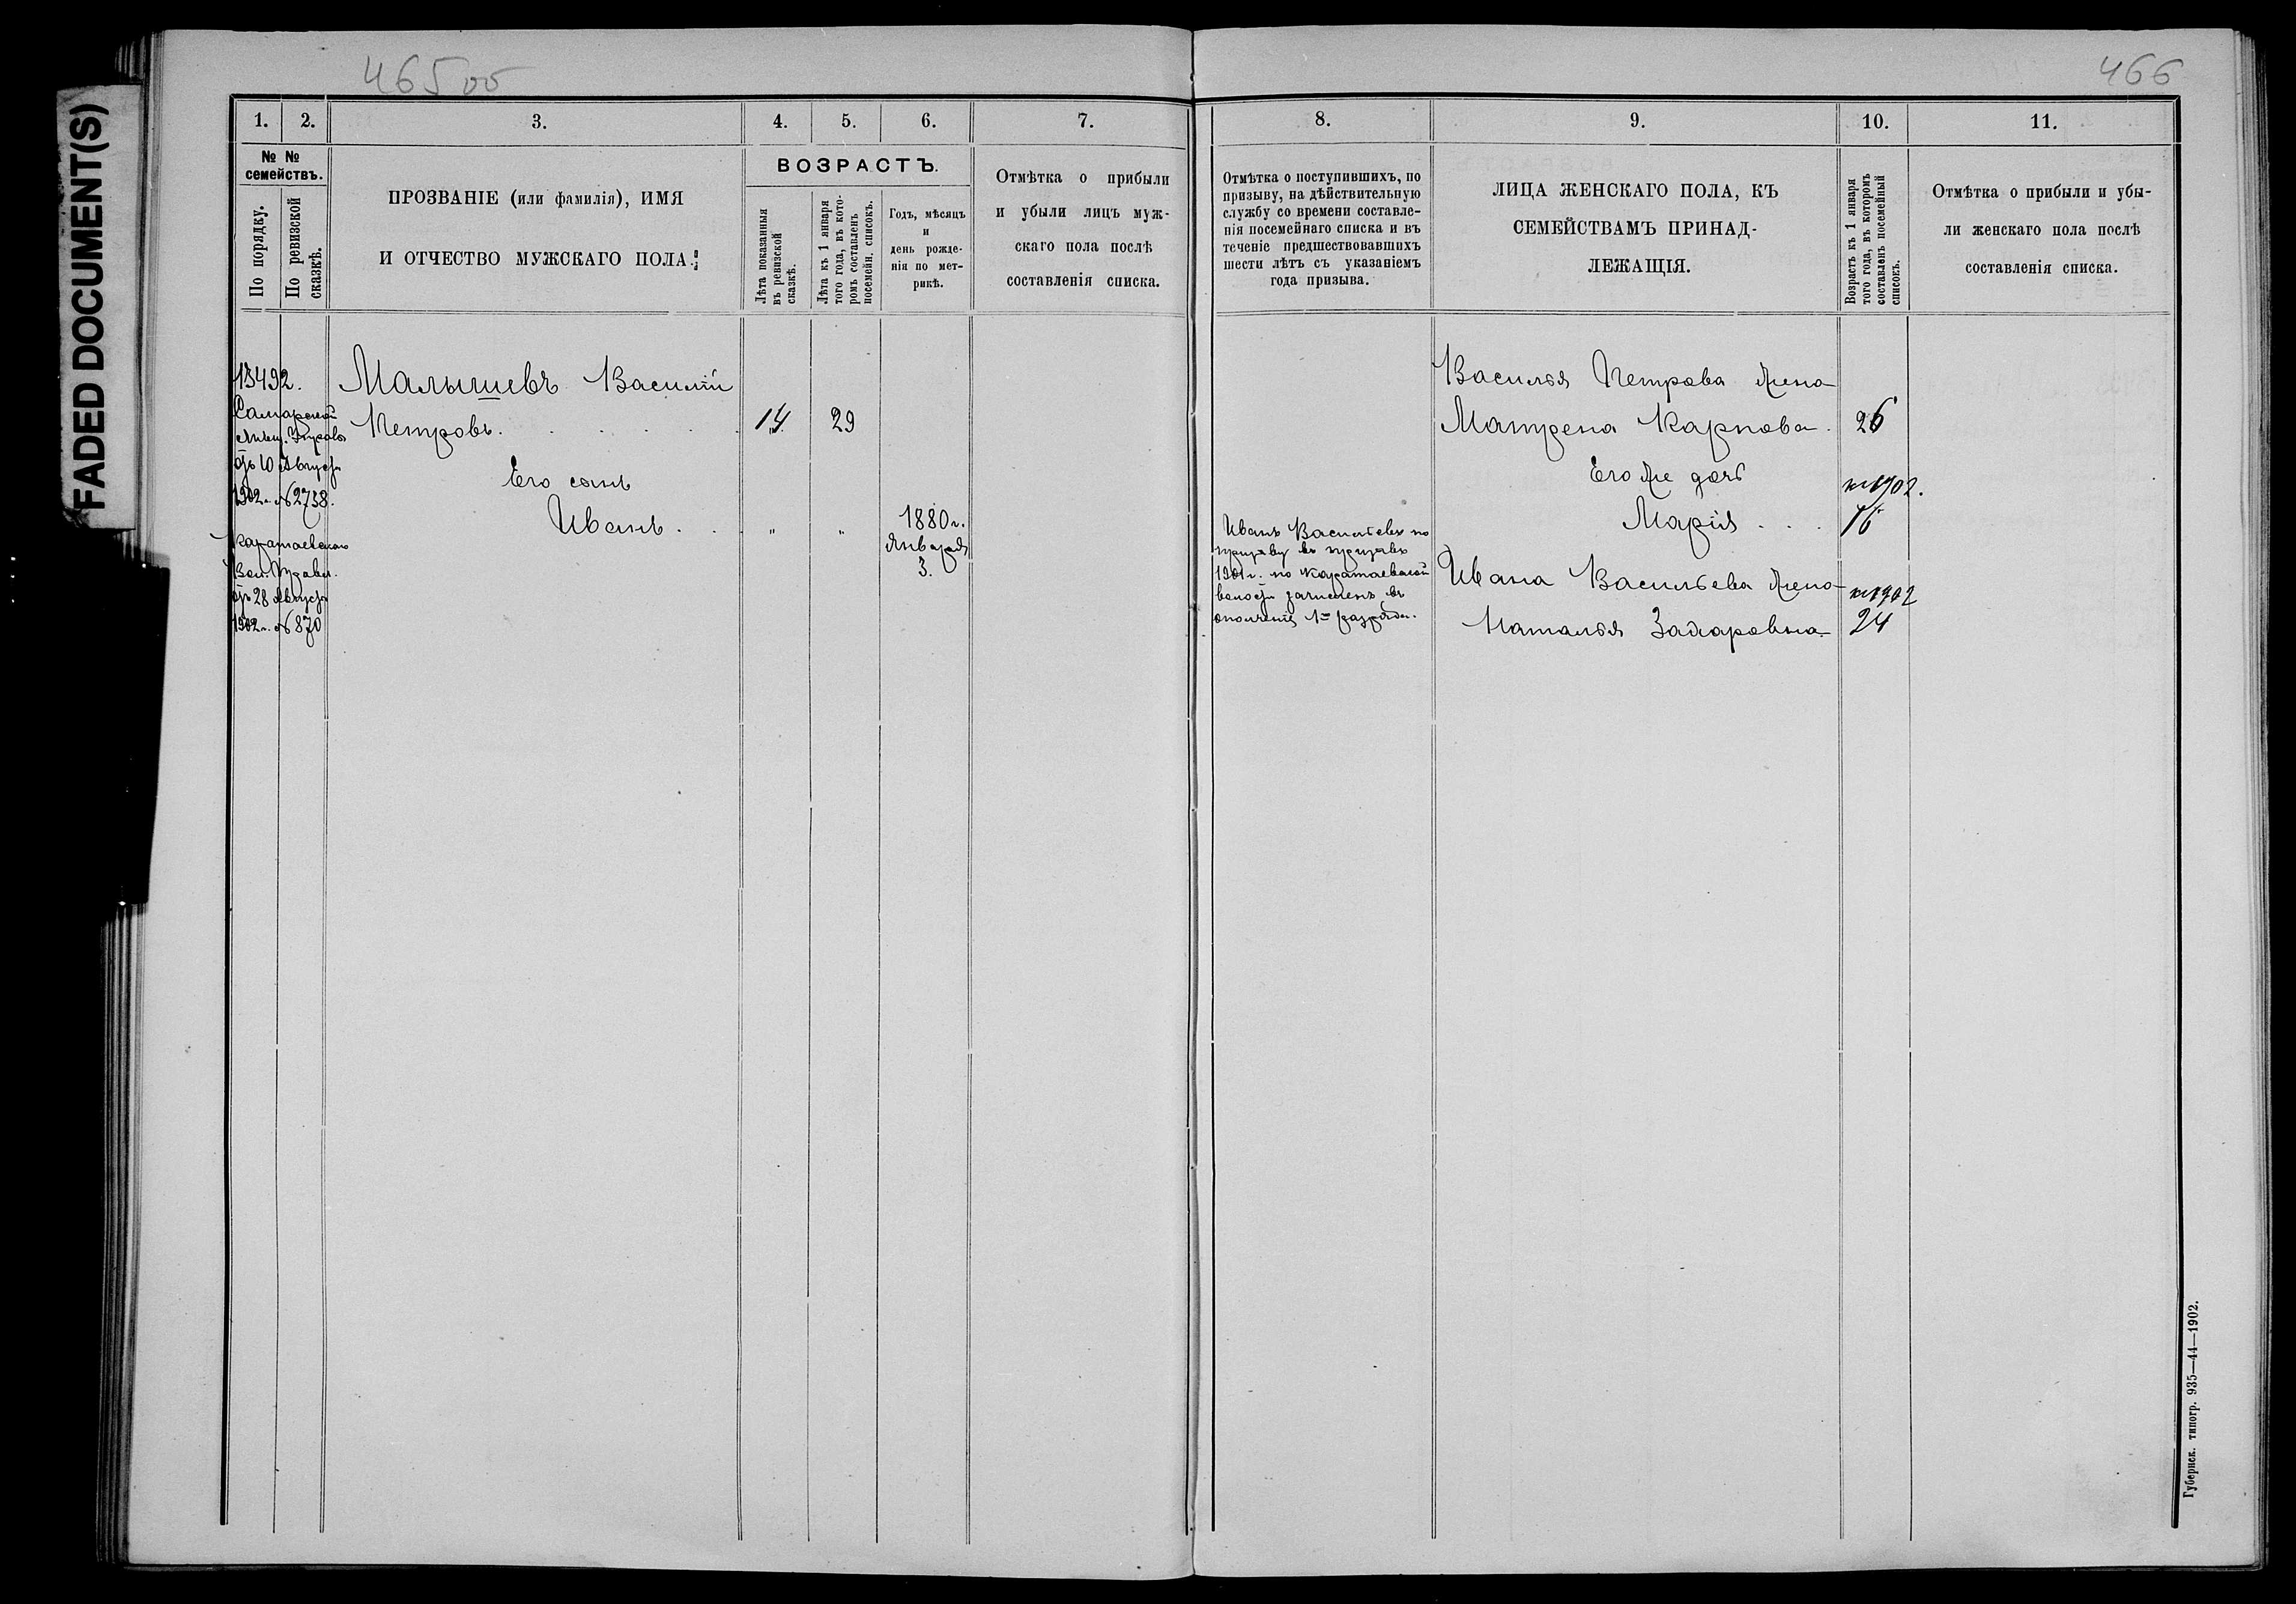 FADED DOCUMENT(S)
465 об
466
1. 2. 3. 4. 5. 6. 7.
№ № семействъ.
По порядку.
По ревизской сказкѣ.
ПРОЗВАНІЕ (или фамилія), ИМЯ
И ОТЧЕСТВО МУЖСКАГО ПОЛА.
ВОЗРАСТЪ.
Лѣта показанныя
въ ревизской
сказкѣ.
Лѣта къ 1 января
того года, въ кото-
ромъ составленъ
посемейн. списокъ.
Годъ, мѣсяцъ
и
день рожде-
нія по мет-
рикѣ.
Отмѣтка о прибыли
и убыли лицъ муж-
скаго пола послѣ
составленія списка.
13492.
Самарской
Мѣщ. Управы
отъ 10 Августа
1902 г. № 2738.
Каратаевскаго
Вол. Правл.
отъ 28 Августа
1902 г. № 870
Малышевъ Василій
Петровъ. 14 29
Его сынъ
Иванъ . . " " 1880 г.
Января
3.
8. 9. 10. 11.
Отмѣтка о поступившихъ, по
призыву, на дѣйствительную
службу со времени составле-
нія посемейнаго списка и въ
теченіе предшествовавшихъ
шести лѣтъ съ указаніемъ
года призыва.
ЛИЦА ЖЕНСКАГО ПОЛА, КЪ
СЕМЕЙСТВАМЪ ПРИНАД-
ЛЕЖАЩІЯ.
Возрастъ къ 1 января
того года, въ которомъ
составленъ посемейный
списокъ.
Отмѣтка о прибыли и убы-
ли женскаго пола послѣ
составленія списка.
Иванъ Васильевъ по
призыву въ призывъ
1901 г. по Каратаевской
волости зачисленъ въ
ополченіе 1го разряда.
Василья Петрова жена
Матрена Карпова. 26
Его же дочь къ 1902.
Марія . . . 16
Ивана Васильева жена къ 1902
Наталья Захаровна 24
Губернск. типогр. 935—44—1902.